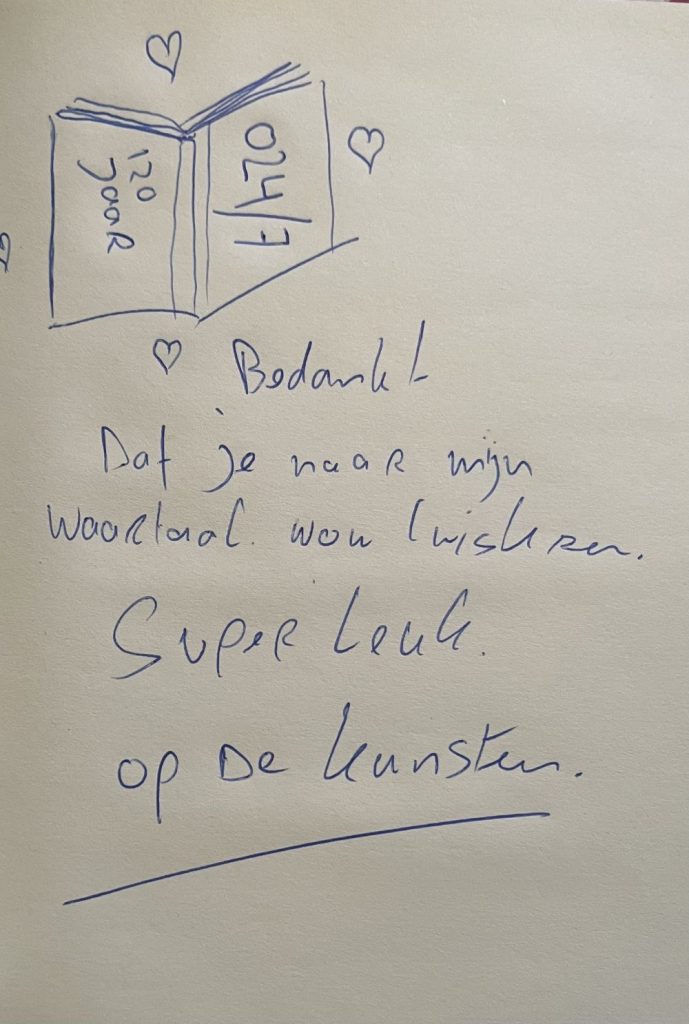 120
Jaar
024/7
Bedankt
Dat je naar mijn
waartaal. wou luisteren.
Super Leuk.
op De kunsten.